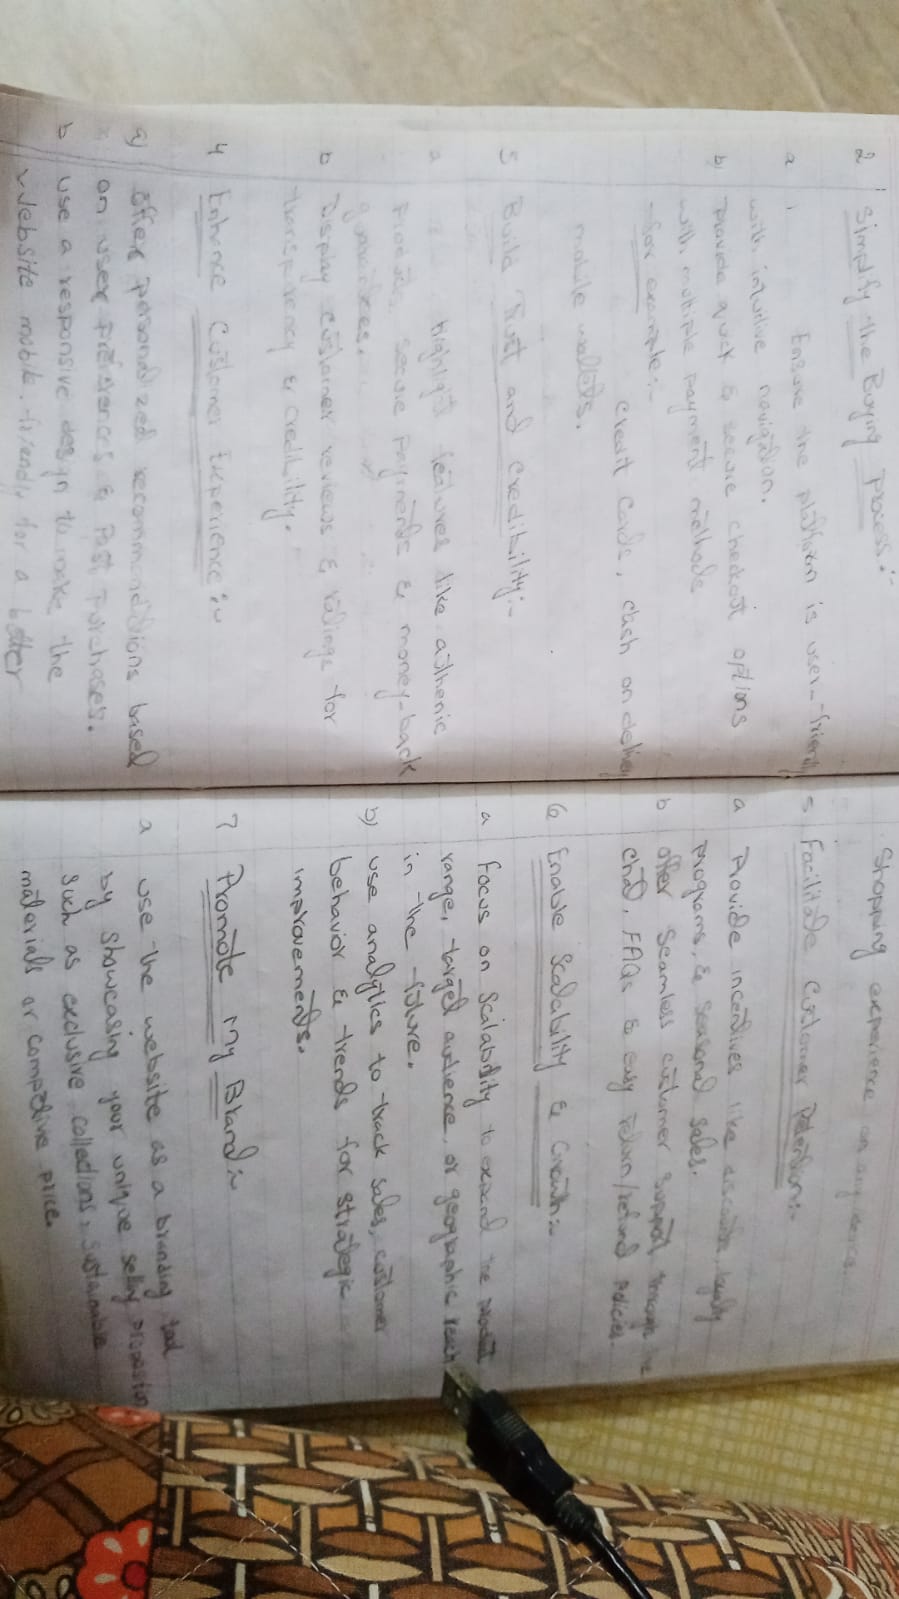 2 Simplify the Buying process:-
a Ensure the platform is user-friendly
with intuitive navigation.
b) Provide quick & secure checkout options
with multiple payment methods
for example:-
credit cards, cash on delivery
mobile wallets.
5 Build Trust and Credibility:-
a highlight features like authenic
secure payments & money-back
b Display customer reviews & ratings for
transparency & credibility.
4 Enhance Customer Experience:-
a) offer personalized recommendations based
on user preferences & Past purchases.
b use a responsive design to make the
website mobile-friendly for a better
Shopping experience on any device.
5 Facilitate Customer Retention:-
a Provide incentives like discounts, loyalty
programs, & seasonal sales.
b offer Seamless customer support through live
chat, FAQs & easy return/refund policies.
6 Enable Scalability & Growth:-
a Focus on Scalability to expand the product
range, target audience, or geographic reach
in the future.
b) use analytics to track sales, customer
behavior & trends for strategic
improvements.
7 Promote my Brand:-
a use the website as a branding tool
by Showcasing your unique selling proposition
Such as exclusive collections, sustainable
materials or competive price.